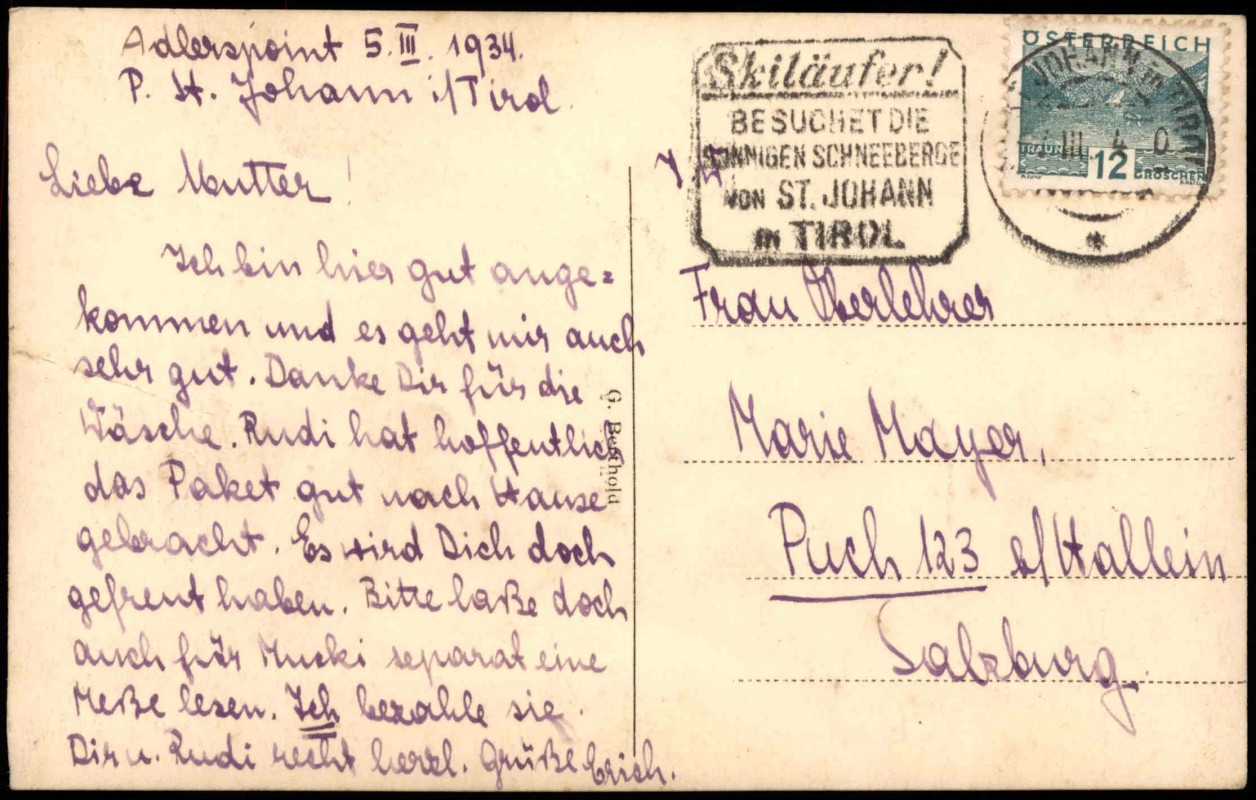 Adlerspoint 5. III. 1934.
P. St. Johann i/Tirol
Liebe Mutter!
Ich bin hier gut ange=
kommen und es geht mir auch
sehr gut. Danke Dir für die
Wäsche. Rudi hat hoffentlich
das Paket gut nach Hause
gebracht. Es wird Dich doch
gefreut haben. Bitte laße doch
auch für Mucki separat eine
Meße lesen. Ich bezahle sie.
Dir u. Rudi recht herzl. Grüße Erich.
G. Berthold
Skiläufer!
BESUCHET DIE
SONNIGEN SCHNEEBERGE
VON ST. JOHANN
in TIROL
ÖSTERREICH
JOHANN in TIROL
III. 4 0
TRAUNSEE
12
GROSCHEN
Frau Oberlehrer
Marie Mayer,
Puch 123 b/Hallein
Salzburg